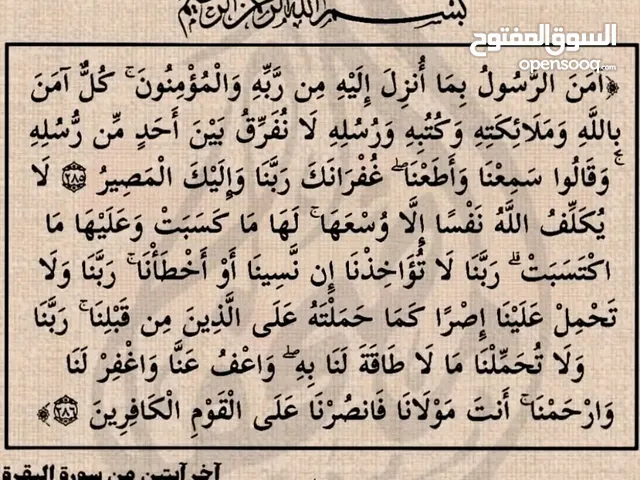 بسم الله الرحمن الرحيم
السوق المفتوح
opensooq.com
﴿آمَنَ الرَّسُولُ بِمَا أُنزِلَ إِلَيْهِ مِن رَّبِّهِ وَالْمُؤْمِنُونَ ۚ كُلٌّ آمَنَ
بِاللَّهِ وَمَلَائِكَتِهِ وَكُتُبِهِ وَرُسُلِهِ لَا نُفَرِّقُ بَيْنَ أَحَدٍ مِّن رُّسُلِهِ
ۚ وَقَالُوا سَمِعْنَا وَأَطَعْنَا ۖ غُفْرَانَكَ رَبَّنَا وَإِلَيْكَ الْمَصِيرُ ﴿٢٨٥﴾ لَا
يُكَلِّفُ اللَّهُ نَفْسًا إِلَّا وُسْعَهَا ۚ لَهَا مَا كَسَبَتْ وَعَلَيْهَا مَا
اكْتَسَبَتْ ۗ رَبَّنَا لَا تُؤَاخِذْنَا إِن نَّسِينَا أَوْ أَخْطَأْنَا ۚ رَبَّنَا وَلَا
تَحْمِلْ عَلَيْنَا إِصْرًا كَمَا حَمَلْتَهُ عَلَى الَّذِينَ مِن قَبْلِنَا ۚ رَبَّنَا
وَلَا تُحَمِّلْنَا مَا لَا طَاقَةَ لَنَا بِهِ ۖ وَاعْفُ عَنَّا وَاغْفِرْ لَنَا
وَارْحَمْنَا ۚ أَنتَ مَوْلَانَا فَانصُرْنَا عَلَى الْقَوْمِ الْكَافِرِينَ ﴿٢٨٦﴾﴾
آخر آيتين من سورة البقرة